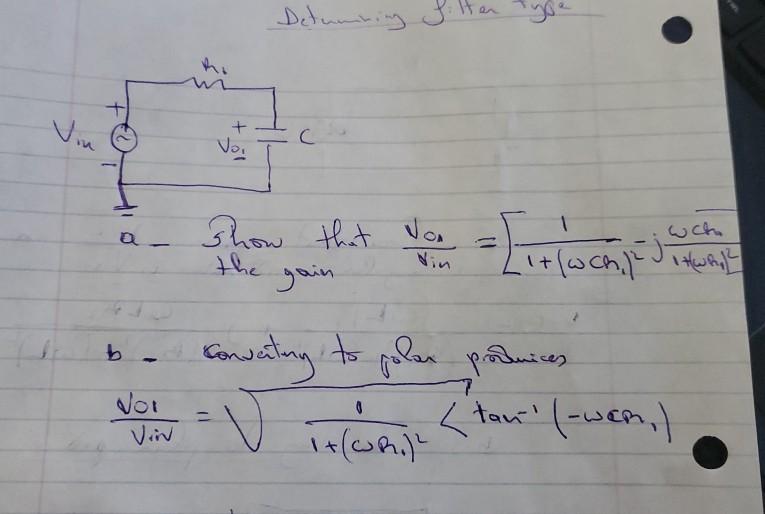 Determining filter type
R₁
+
Vin
-
+
Vo₁
-
C
a - Show that the gain Vo₁/Vin = [1/(1+(ωCR₁)²) - j ωCR₁/(1+(ωR₁)²
b - Converting to polar produces
Vo1/Vin = √ 1/(1+(ωR₁)²) < tan⁻¹ (-ωCR₁)